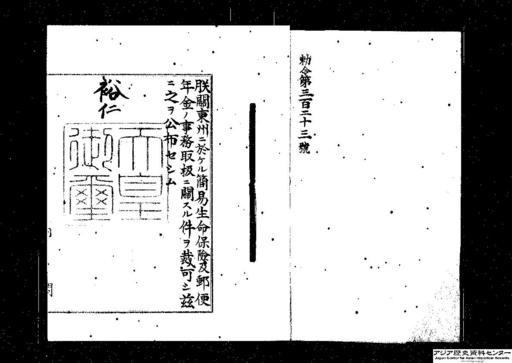 勅令第三百二十三號
朕關東州ニ於ケル簡易生命保險及郵便
年金ノ事務取扱ニ關スル件ヲ裁可シ茲
ニ之ヲ公布セシム
裕仁
天皇
御璽
内
閣
アジア歴史資料センター
Japan Center for Asian Historical Records